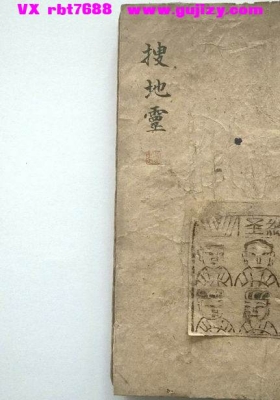 VX rbt7688 www.gujizy.com
搜地靈